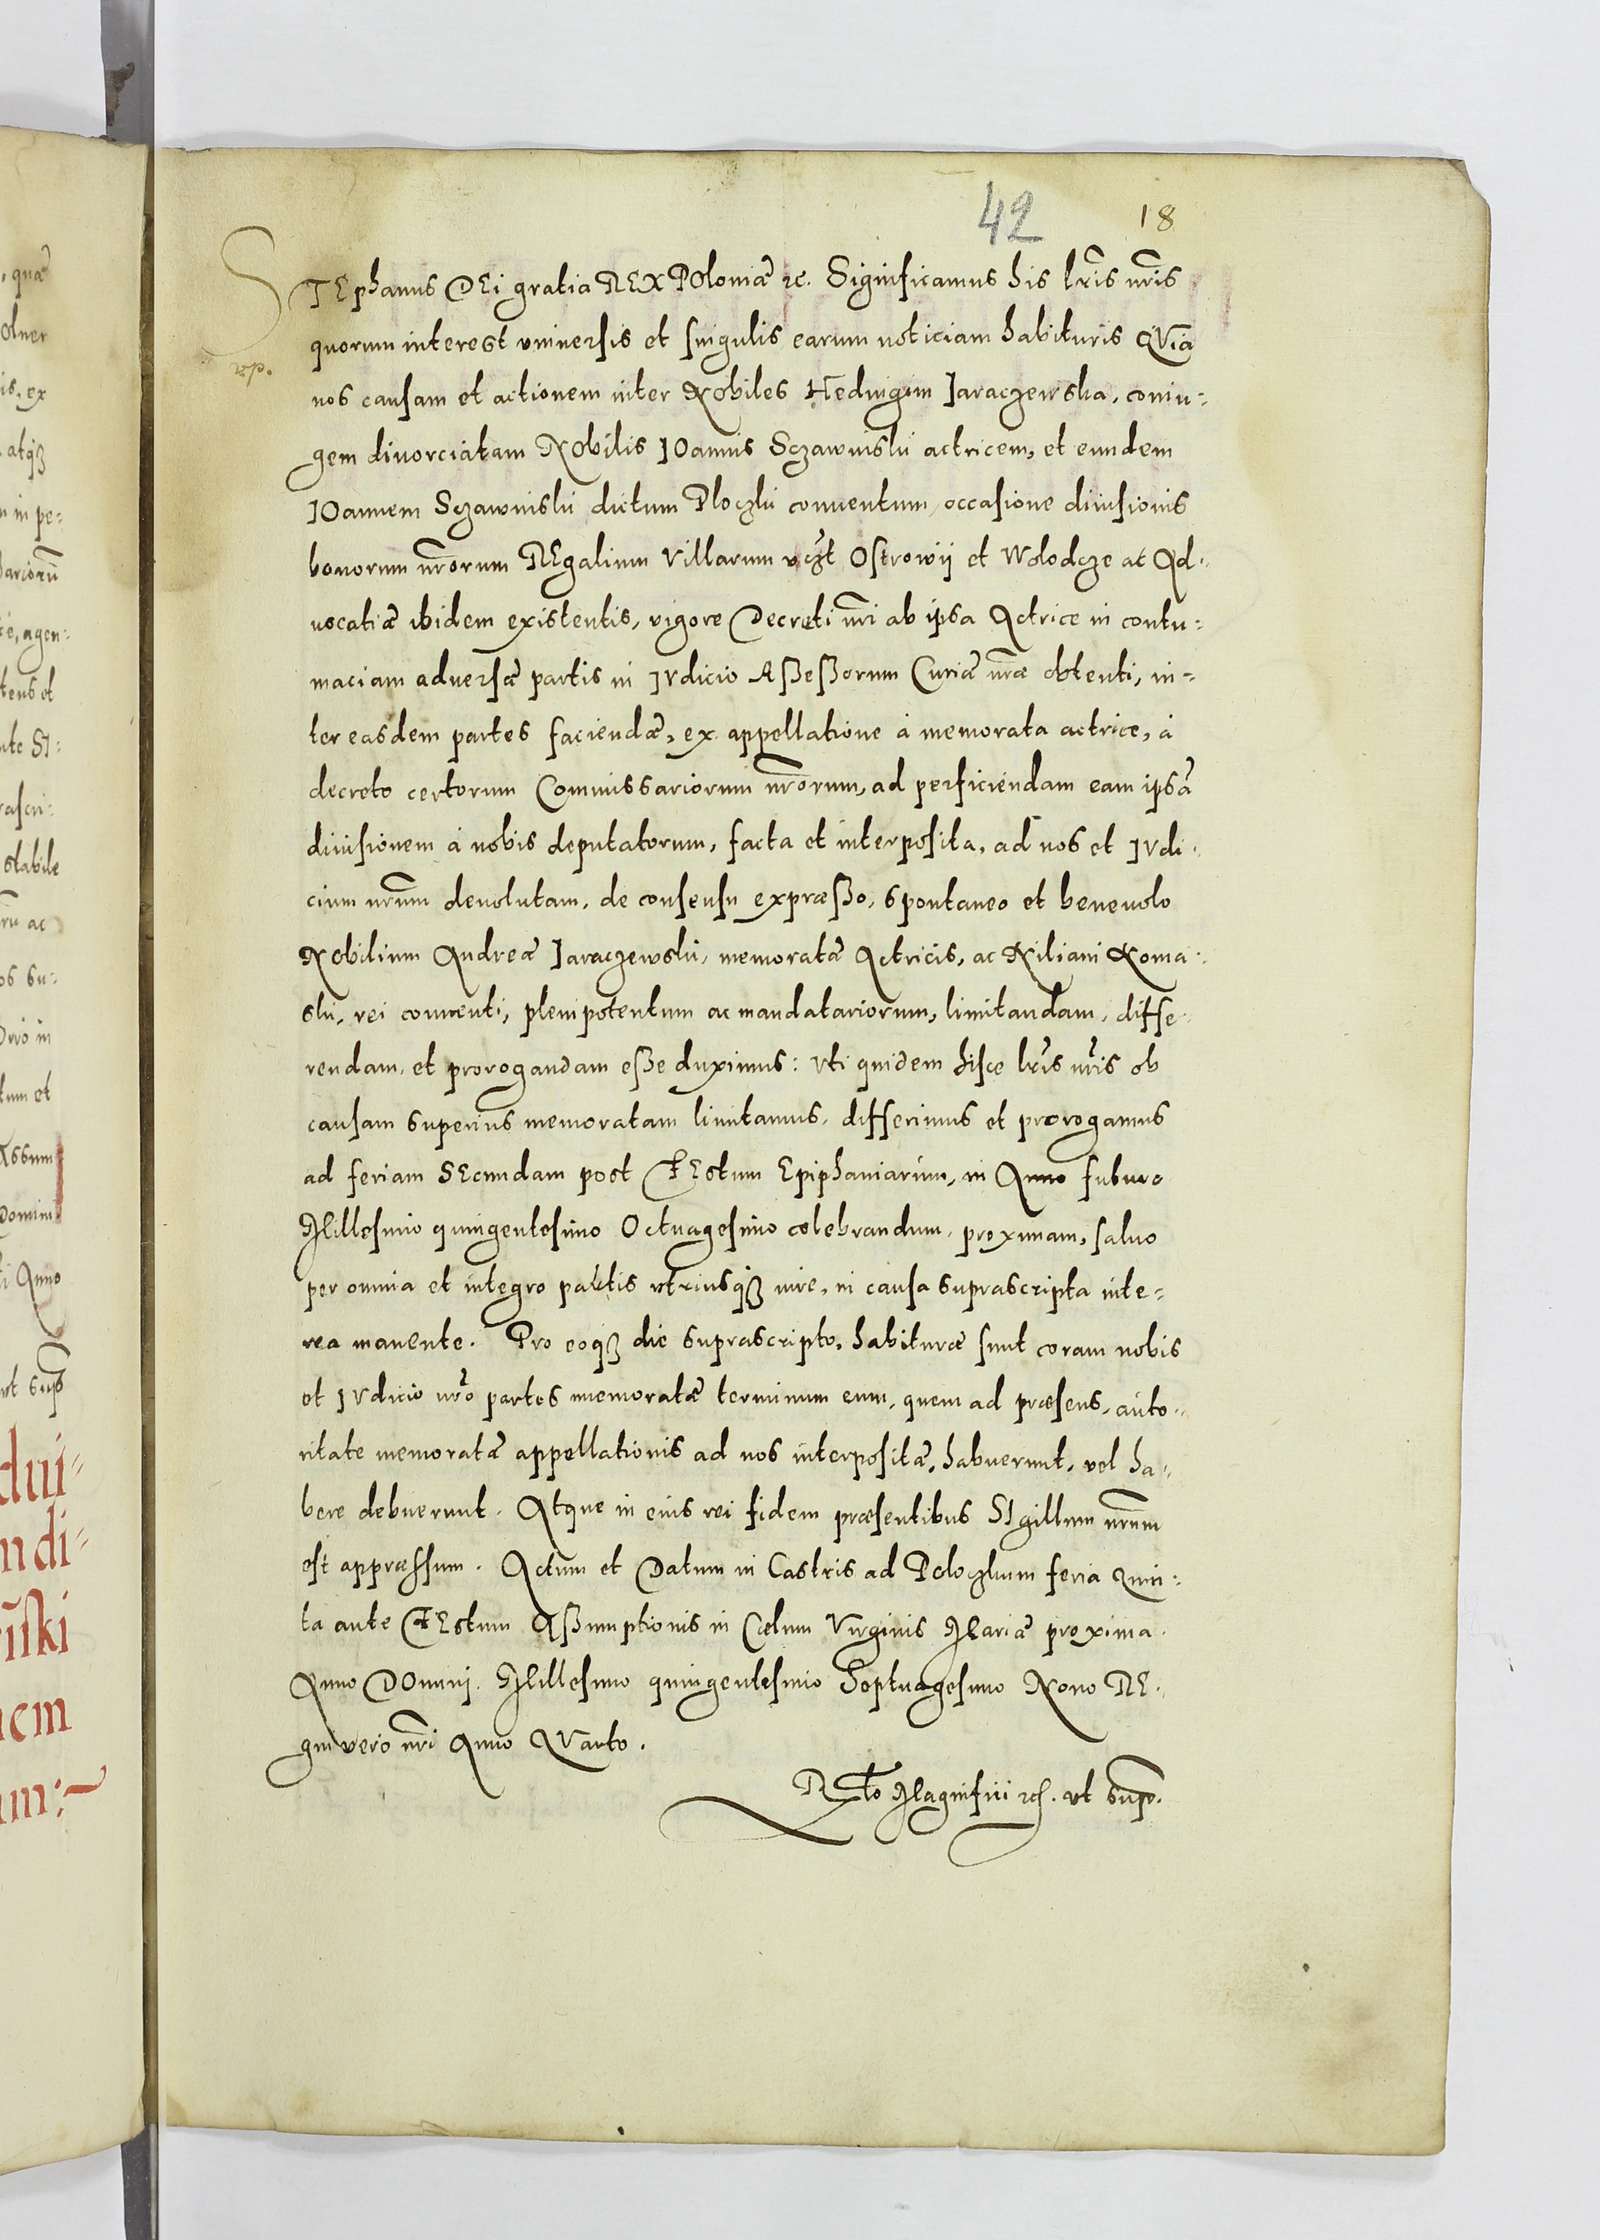 42 18
STEphanus DEi gratia REX POloniæ ꝛc. Significamus his lr̃is nr̃is
quorum interest vniuersis et singulis earum noticiam habituris QVia
nos causam et actionem inter Nobiles Heduigem Jaraczewska, coniu-
gem diuorciatam Nobilis JOannis Sczawiński actricem, et eundem
JOannem Sczawiński dictum Ploczki conuentum, occasione diuisionis
bonorum nr̃orum REgalium Villarum vcz̃t Ostrowij et Wolodcze ac Ad-
uocatiæ ibidem existentis, vigore Decreti nr̃i ab ipsa Actrice in contu-
maciam aduersæ partis in JVdicio Aßeßorum Curiæ nr̃æ obtenti, in-
ter easdem partes faciendæ, ex appellatione à memorata actrice, à
decreto certorum Commissariorum nr̃orum, ad perficiendam eam ipsã
diuisionem à nobis deputatorum, facta et interposita, ad nos et JVdi-
cium nr̃um deuolutam, de consensu expræßo, spontaneo et beneuolo
Nobilium Andreæ Jaraczewski, memoratæ Actricis, ac Kiliani Koma-
ski, rei conuenti, plenipotentum ac mandatariorum, limitandam, diffe-
rendam, et prorogandam eße duximus: Vti quidem hisce lr̃is nr̃is ob
causam superius memoratam limitamus, differimus et prorogamus
ad feriam SEcundam post FEstum Epiphaniarum, in Anno futuro
Millesimo quingentesimo Octuagesimo celebrandum, proximam, saluo
per omnia et integro partis vtriusqꝫ iure, in causa suprascripta inte-
rea manente. Pro eoqꝫ die suprascripto, habituræ sunt coram nobis
et JVdicio nr̃o partes memoratæ terminum eum, quem ad præsens, auto-
ritate memoratæ appellationis ad nos interpositæ, habuerunt, vel ha-
bere debuerunt. Atque in eius rei fidem præsentibus SIgillum nr̃um
est appræssum. Actum et Datum in Castris ad Poloczkum feria Quin-
ta ante FEstum Aßumptionis in Cælum Virginis Mariæ proxima.
Anno DOmini. Millesimo quingentesimo Septuagesimo Nono RE-
gni vero nr̃i Anno QVarto.
R̃lto Magnifici ꝛc. vt supra.